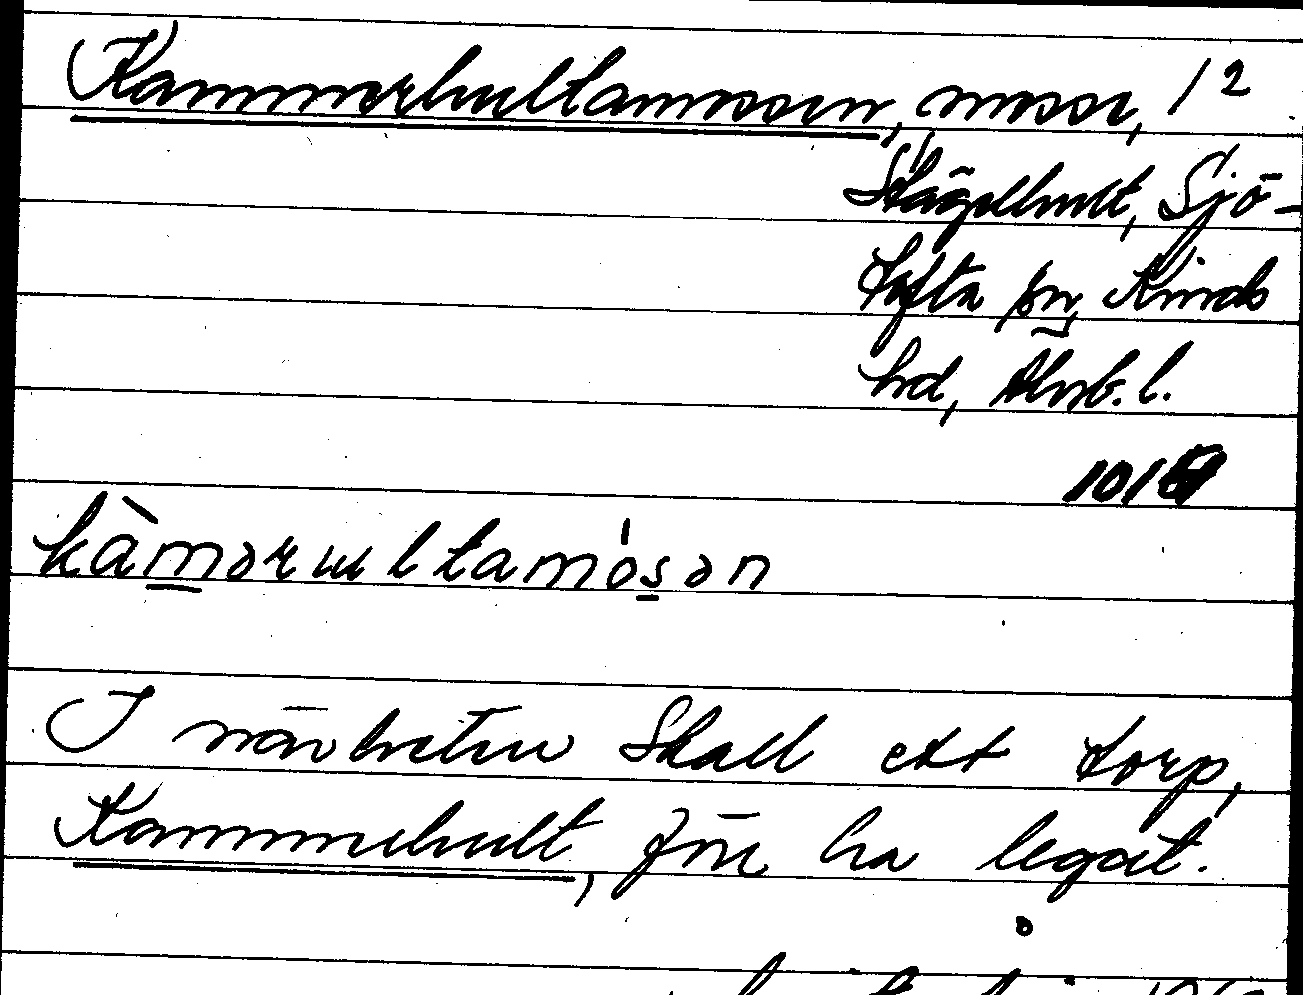 Kammerhultamossen, mosse, 12
Stägelhult, Sjö-
tofta sn, Kinds
hd, Älvsb. l.
kàmərultamósən
I närheten skall ett torp,
Kammerhult, förr ha legat.